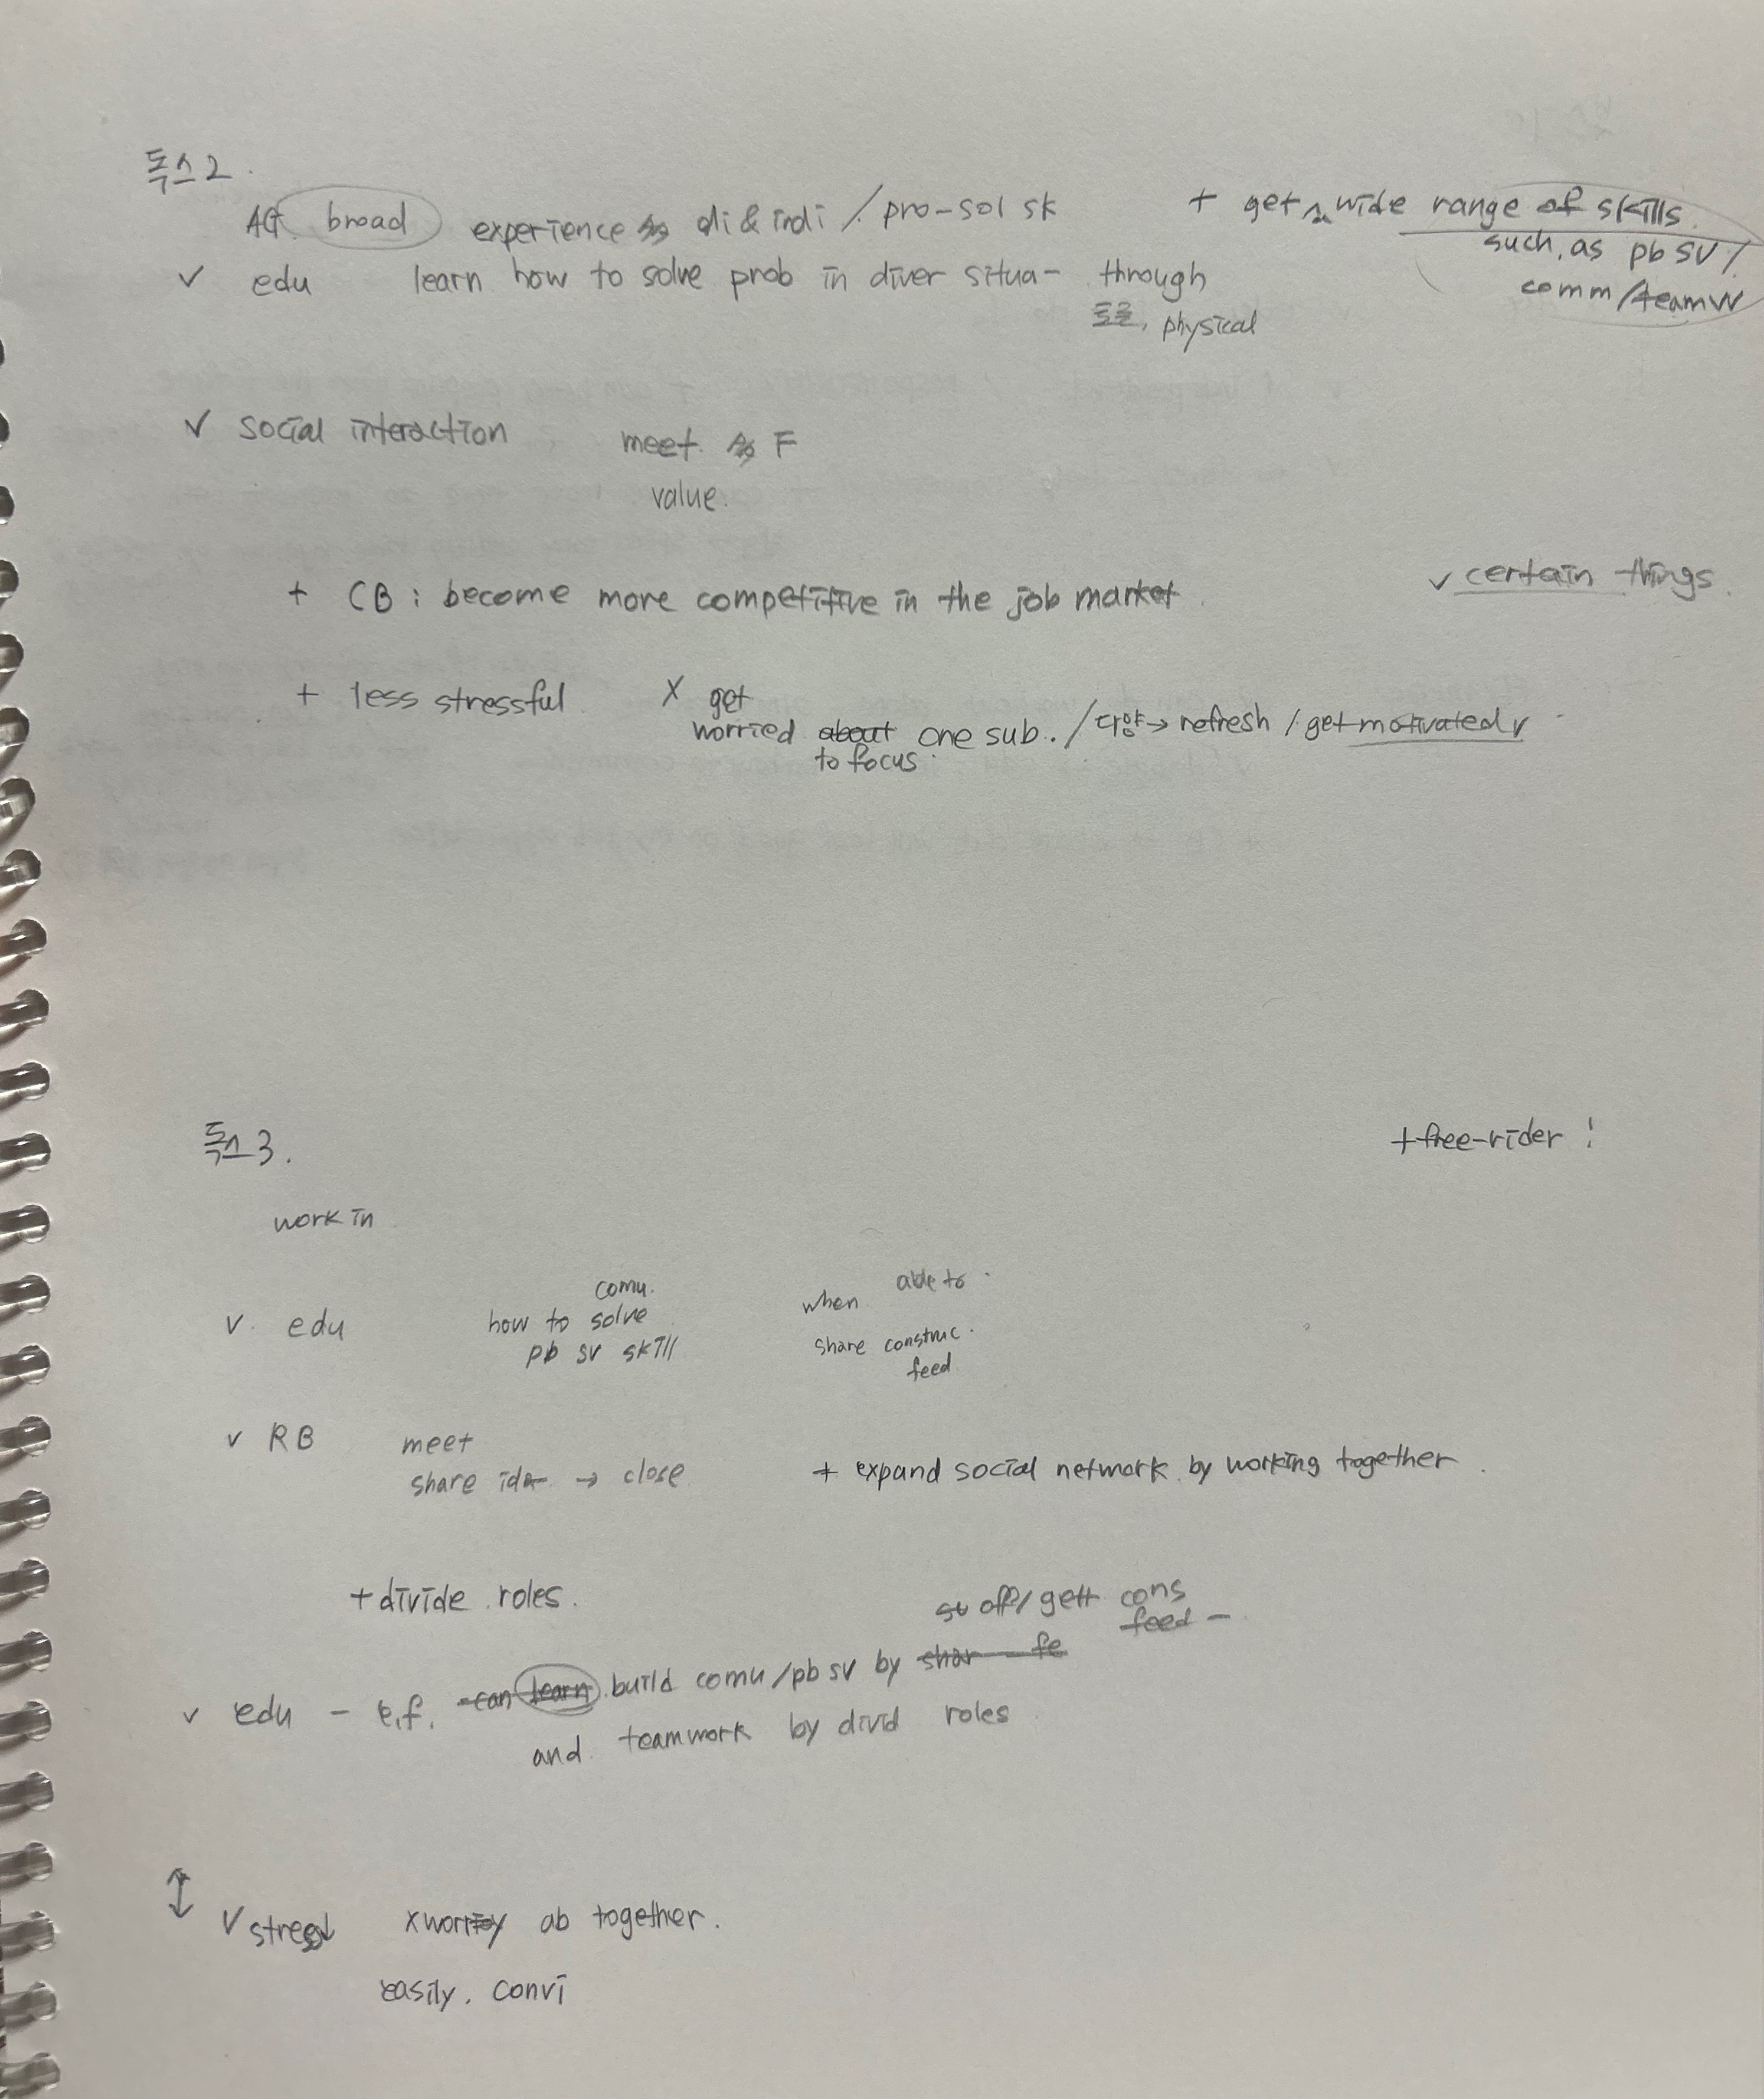 독스2.
AG. broad experience di & indi / pro-sol sk + get a wide range of skills.
such as pb sv /
comm/teamw
✓ edu learn how to solve prob in diver situa- through
토론, physical
✓ social interaction meet F
value.
+ CB : become more competitive in the job market.
✓ certain things.
+ less stressful X get
worried about one sub. / 다양→ refresh / get motivated ✓
to focus.
독스3.
+free-rider !
work in
comu. able to.
✓ edu how to solve when
pb sv skill share construc.
feed
✓ RB meet
share ide → close + expand social network by working together.
+divide roles. off/ gett cons
feed -
✓ edu - e.f. can learn build comu/pb sv by shar fe
and teamwork by divid roles
↕
✓ stress↓ x worry ab together.
easily. convi